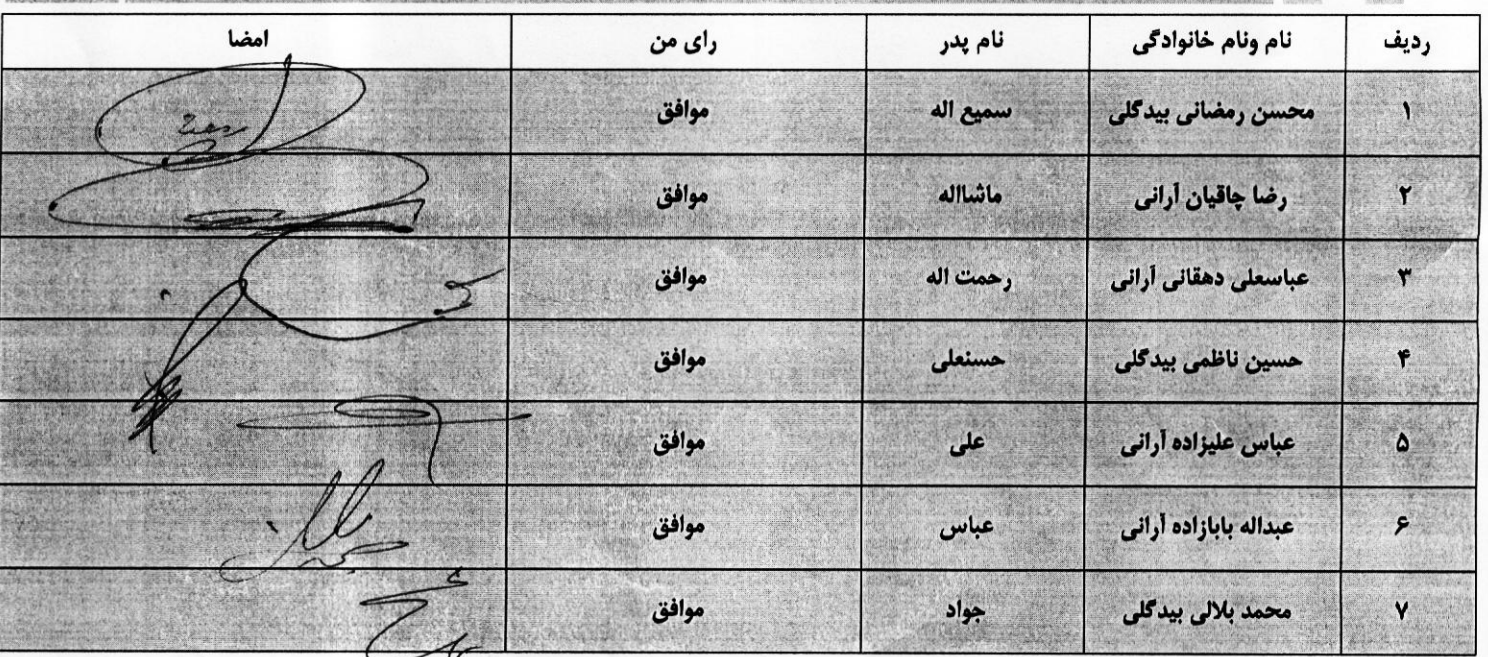 ردیف نام ونام خانوادگی نام پدر رای من امضا
۱ محسن رمضانی بیدگلی سمیع اله موافق
۲ رضا چاقیان آرانی ماشااله موافق
۳ عباسعلی دهقانی آرانی رحمت اله موافق
۴ حسین ناظمی بیدگلی حسنعلی موافق
۵ عباس علیزاده آرانی علی موافق
۶ عبداله بابازاده آرانی عباس موافق
۷ محمد بلالی بیدگلی جواد موافق